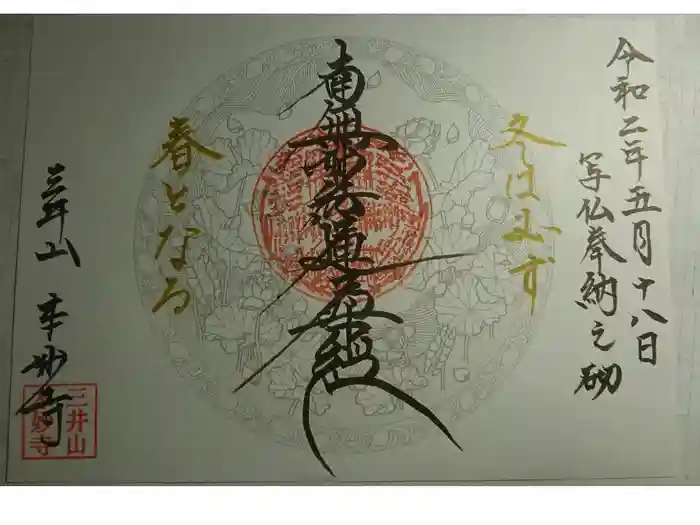 令和二年五月十八日
写仏奉納之砌
冬は必ず
南無妙法蓮華経
春となる
三井山 本妙寺
三井山
本妙寺